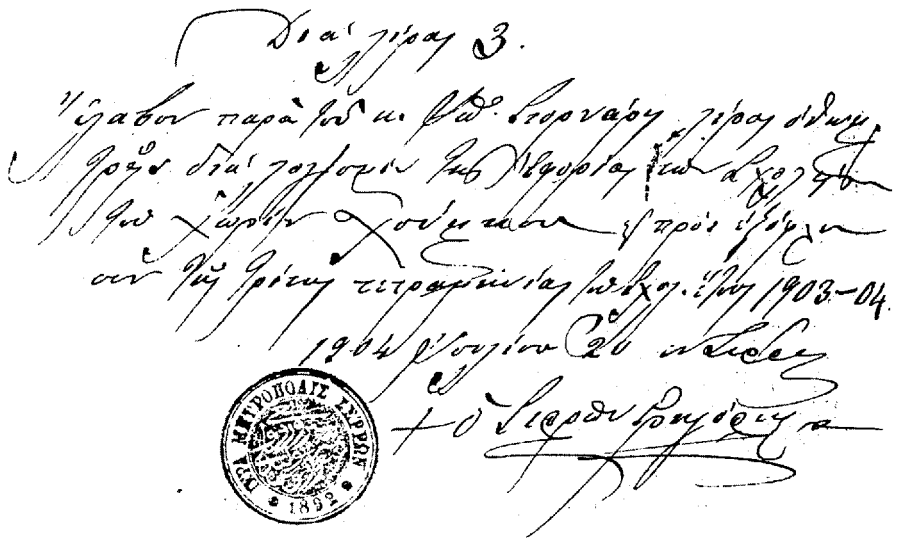 Διά λίρας 3.
Ἔλαβον παρὰ τοῦ κ. Στορνάρη λίρας ὀθωμ.
τρεῖς διά λογ/σμόν τῆς Ἐφορίας τῶν Σχολείων
τοῦ χωρίου πρός ἐξόφλη
σιν τῆς τρίτης τετραμηνίας τοῦ σχολ. ἔτους 1903-04.
1904 Ἰουλίου 20 ἐν Σέρραις
+ ὁ Σερρῶν Γρηγόριος
ΙΕΡΑ ΜΗΤΡΟΠΟΛΙΣ ΣΕΡΡΩΝ
1892